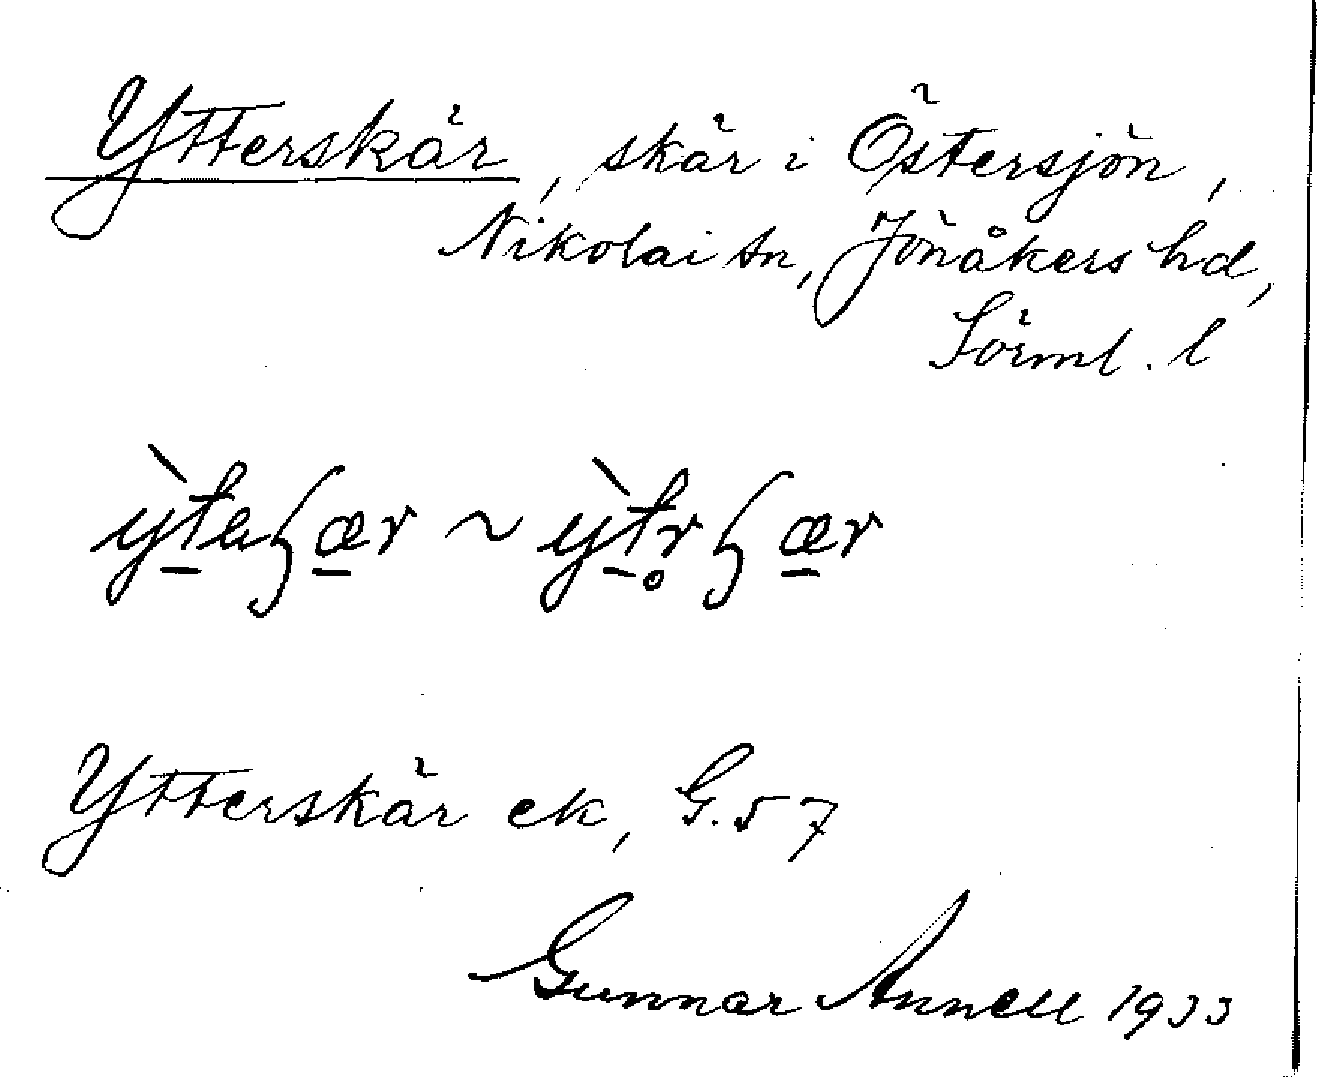 Ytterskär, skär i Östersjön,
Nikolai sn, Jönåkers hd,
Sörml. l
Ytterskär ek, G.57
Gunnar Annell 1933